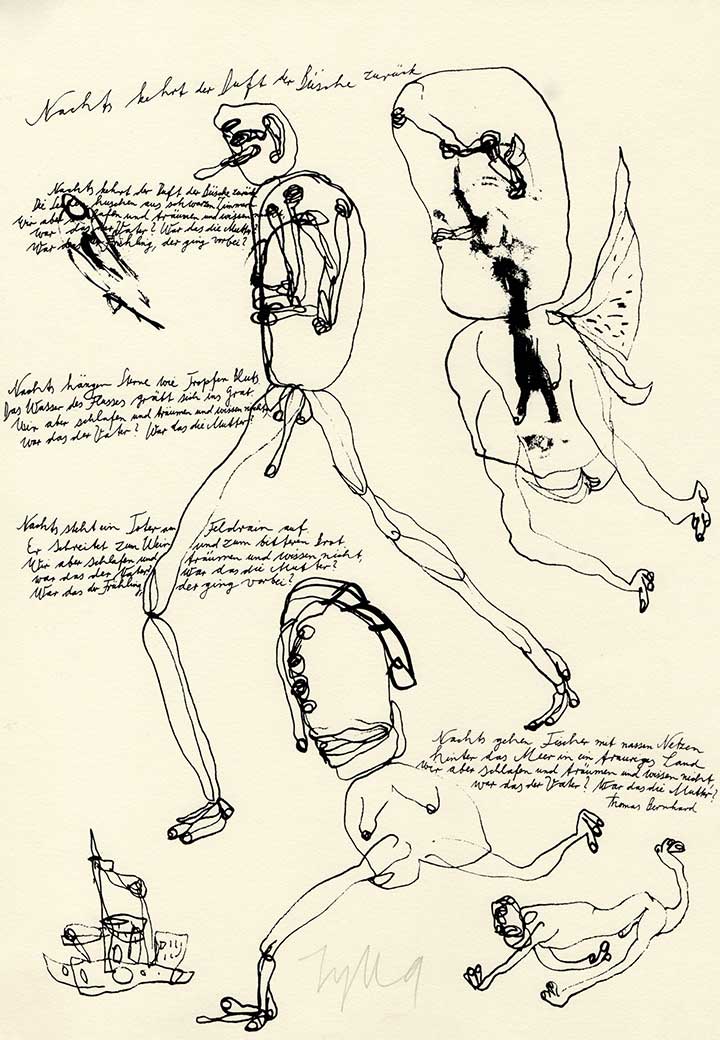 Nachts kehrt der Duft der Büsche zurück
Nachts kehrt der Duft der Büsche zurück
Die huschen aus schwarzen Zimmern
Wir aber schlafen und träumen und wissen
war das der Vater? War das die Mutter?
War das der Frühling, der ging vorbei?
Nachts hängen Sterne wie Tropfen Bluts
Das Wasser des Flusses gräbt sich ins Grab
Wir aber schlafen und träumen und wissen nicht
War das der Vater? War das die Mutter?
Nachts steht ein Toter am Feldrain auf
Er schreitet zum Wein und zum bitteren Brot
Wir aber schlafen und träumen und wissen nicht,
was das der Vater? War das die Mutter?
War das der Frühling, der ging vorbei?
Nachts gehen Fischer mit nassen Netzen
hinter das Meer in ein trauriges Land
wir aber schlafen und träumen und wissen nicht
war das der Vater? War das die Mutter?
Thomas Bernhard
Zylla